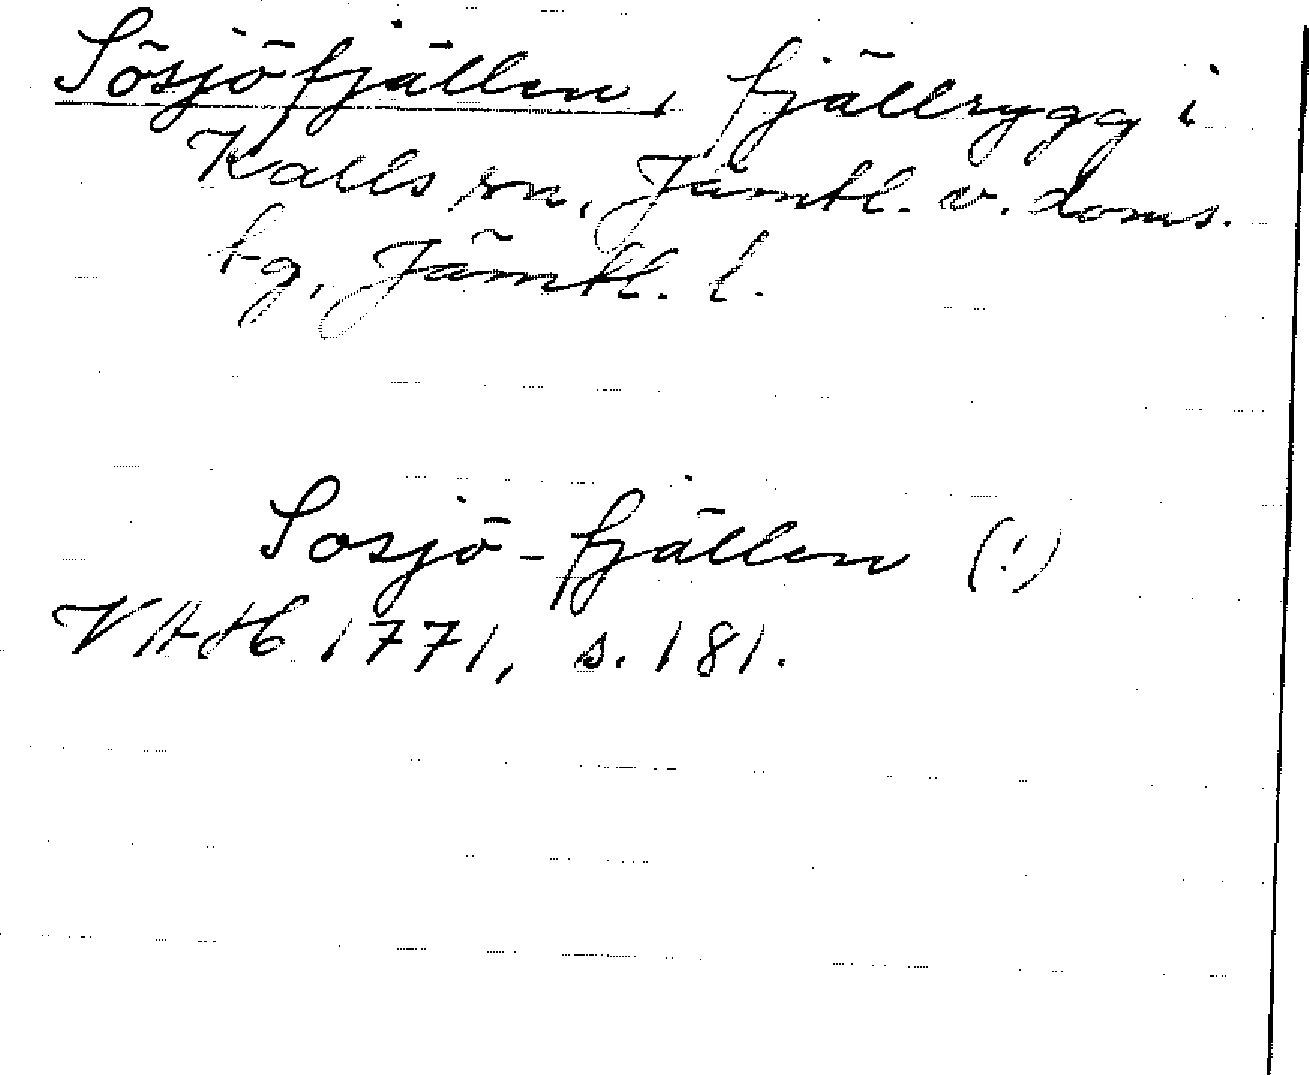 Sösjöfjällen, fjällrygg i
Kalls sn, Jämtl. v. doms.
tg, Jämtl. l.
Sosjö-fjällen (!)
VAH 1771, s. 181.